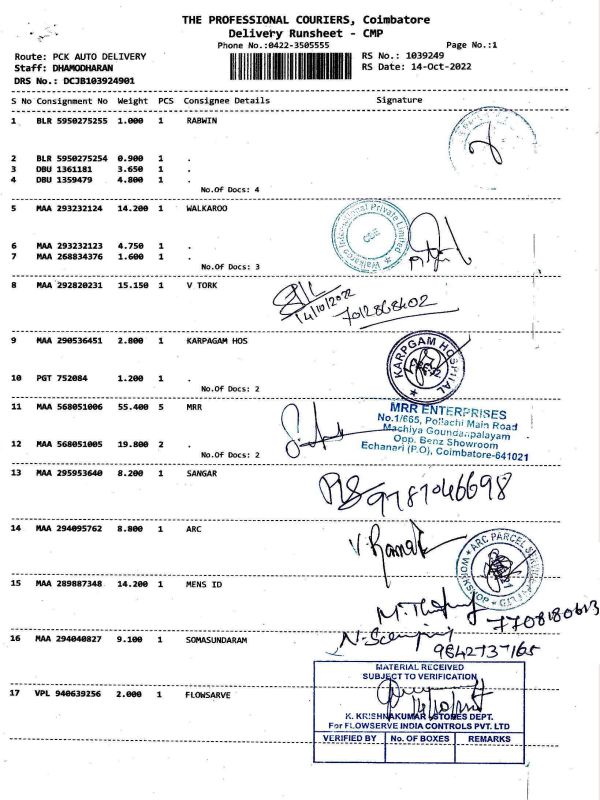 THE PROFESSIONAL COURIERS, Coimbatore
Delivery Runsheet - CMP
Phone No.:0422-3505555 Page No.:1
Route: PCK AUTO DELIVERY RS No.: 1039249
Staff: DHAMODHARAN RS Date: 14-Oct-2022
DRS No.: DCJB103924901
S No Consignment No Weight PCS Consignee Details Signature
1 BLR 5950275255 1.000 1 RABWIN
2 BLR 5950275254 0.900 1 .
3 DBU 1361181 3.650 1 .
4 DBU 1359479 4.800 1 .
No.Of Docs: 4
5 MAA 293232124 14.200 1 WALKAROO
Walkaroo International Private Limited
CBE
6 MAA 293232123 4.750 1 .
7 MAA 268834376 1.600 1 .
No.Of Docs: 3
8 MAA 292820231 15.150 1 V TORK
14/10/2022
7012868402
9 MAA 290536451 2.800 1 KARPAGAM HOS
KARPGAM HOSPITAL
10 PGT 752084 1.200 1 .
No.Of Docs: 2
11 MAA 568051006 55.400 5 MRR
MRR ENTERPRISES
No.1/665, Pollachi Main Road
Machiya Goundanpalayam
Opp. Benz Showroom
Echanari (P.O), Coimbatore-641021
12 MAA 568051005 19.800 2 .
No.Of Docs: 2
13 MAA 295953640 8.200 1 SANGAR
9787046698
14 MAA 294095762 8.800 1 ARC
ARC PARCEL SERVICE
WORKSHOP
15 MAA 289887348 14.200 1 MENS ID
7708180613
16 MAA 294040827 9.100 1 SOMASUNDARAM
9842737165
MATERIAL RECEIVED
SUBJECT TO VERIFICATION
17 VPL 940639256 2.000 1 FLOWSARVE
K. KRISHNAKUMAR -STORES DEPT.
For FLOWSERVE INDIA CONTROLS PVT. LTD
VERIFIED BY No. of BOXES REMARKS